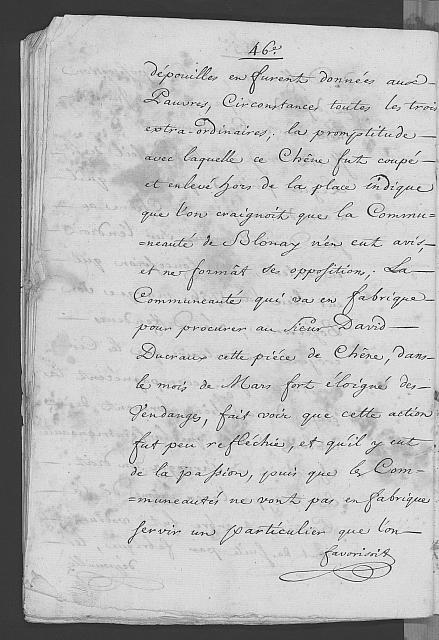 46.e
dépouilles en furent données aux
Pauvres, Circonstances toutes les trois
extra-ordinaires; la promptitude
avec laquelle ce Chêne fut coupé
et enlevé hors de la place indique
que l'on craignoit que la Commu-
=neauté de Blonay n'en eut avis,
et ne formât ses oppositions; La
Communeauté qui va en fabrique
pour procurer au Sieur David
Ducraux cette piéce de Chêne, dans
le mois de Mars fort éloigné des
Vendanges, fait voir que cette action
fut peu refléchie, et qu'il y eut
de la passion, puis que les Com-
=muneautés ne vont pas en fabrique
servir un particulier que l'on
favorisit